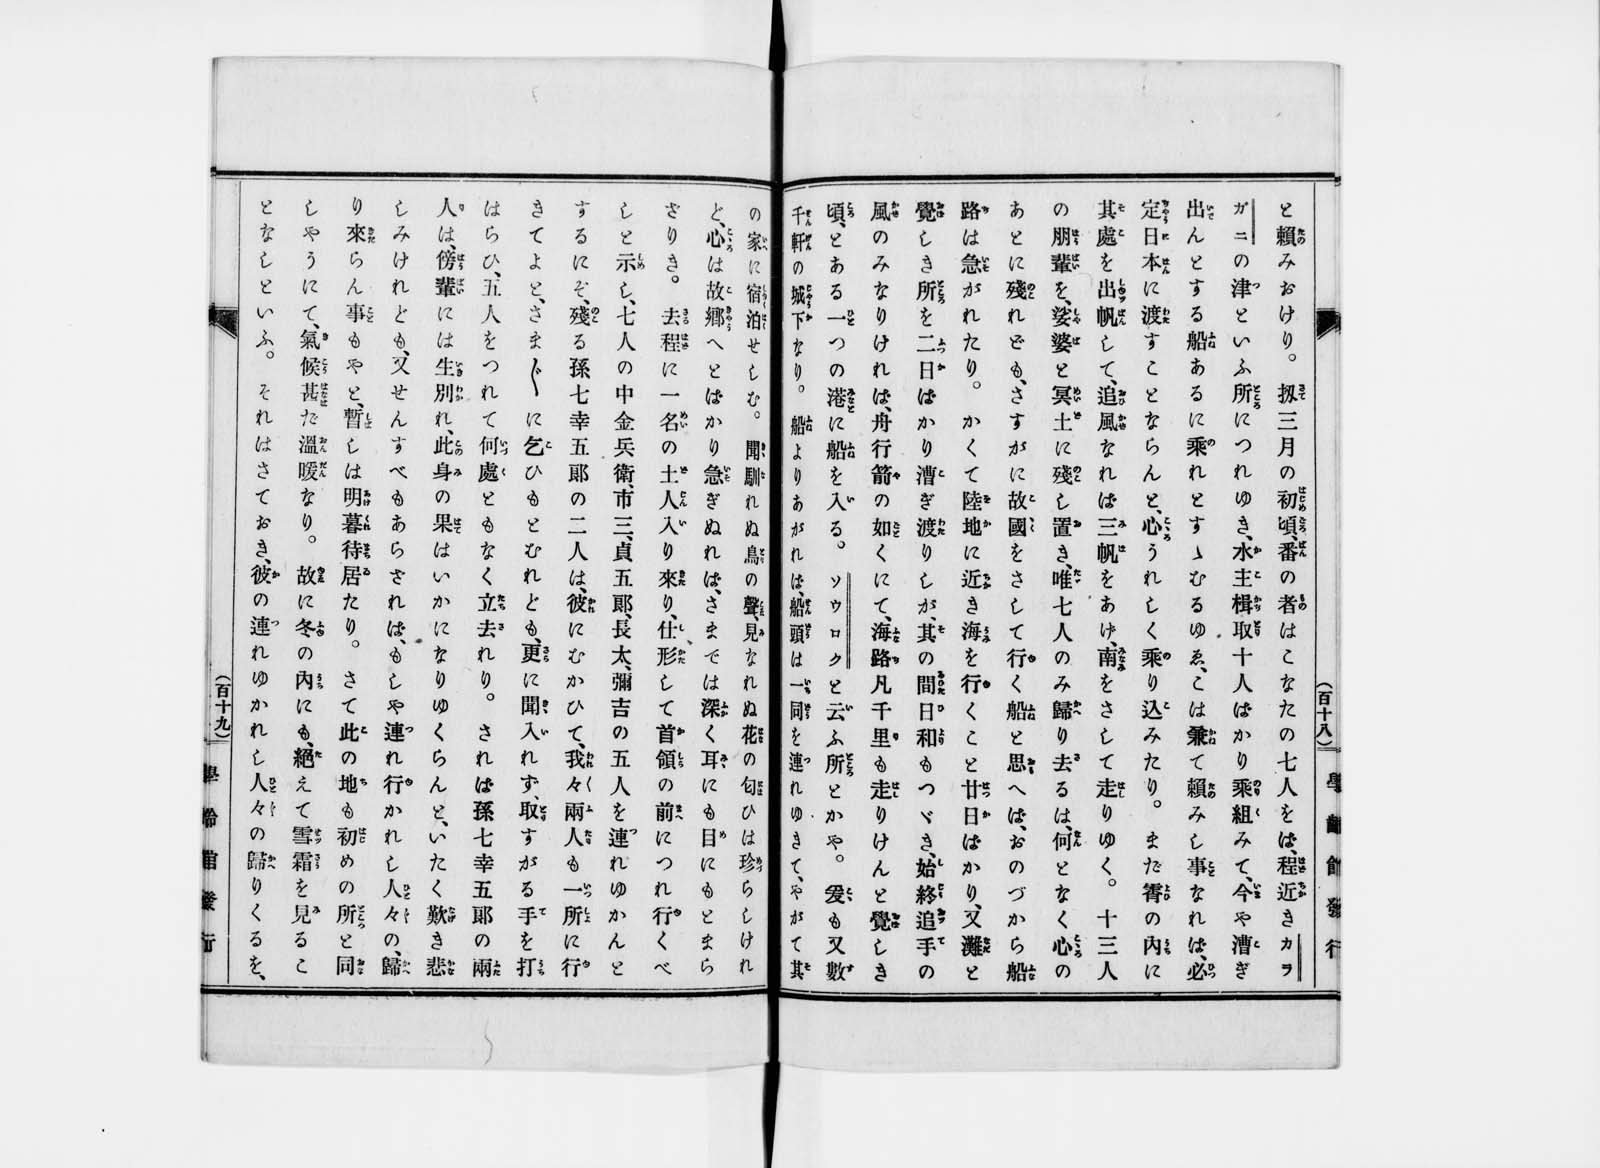 と賴みおけり。扨三月の初頃、番の者はこなたの七人をば、程近きカヲ
ガニの津といふ所につれゆき、水主楫取十人ばかり乘組みて、今や漕ぎ
出んとする船あるに乘れとすゝむるゆゑ、こは兼て賴みし事なれば、必
定日本に渡すことならんと、心うれしく乘り込みたり。まだ霄の內に
其處を出帆して、追風なれば三帆をあけ、南をさして走りゆく。十三人
の朋輩を、娑婆と冥土に殘し置き、唯七人のみ歸り去るは、何となく心の
あとに殘れども、さすがに故國をさして行く船と思へば、おのづから船
路は急がれたり。かくて陸地に近き海を行くこと廿日ばかり、又灘と
覺しき所を二日ばかり漕ぎ渡りしが、其の間日和もつゞき、始終追手の
風のみなりければ、舟行箭の如くにて、海路凡千里も走りけんと覺しき
頃、とある一つの港に船を入る。ソウロクと云ふ所とかや。爰も又數
千軒の城下なり。船よりあがれは、船頭は一同を連れゆきて、やがて其
(百十八)
學齡館發行
の家に宿泊せしむ。聞馴れぬ鳥の聲、見なれぬ花の匂ひは珍らしけれ
ど、心は故鄕へとばかり急ぎぬれば、さまでは深く耳にも目にもとまら
ざりき。去程に一名の土人入り來り、仕形して首領の前につれ行くべ
しと示し、七人の中金兵衛、市三、貞五郞、長太、彌吉の五人を連れゆかんと
するにぞ、殘る孫七幸五郞の二人は、彼にむかひて、我々兩人も一所に行
きてよと、さま〴〵に乞ひもとむれども、更に聞入れず、取すがる手を打
はらひ、五人をつれて何處ともなく立去れり。されば孫七幸五郞の兩
人は、傍輩には生別れ、此身の果はいかになりゆくらんと、いたく歎き悲
しみけれども、又せんすべもあらされば、もしや連れ行かれし人々の、歸
り來らん事もやと、暫しは明暮待居たり。さて此の地も初めの所と同
しやうにて、氣候甚だ溫暖なり。故に冬の內にも、絕えて雪霜を見るこ
となしといふ。それはさておき、彼の連れゆかれし人々の歸りくるを、
(百十九)
學齡館發行